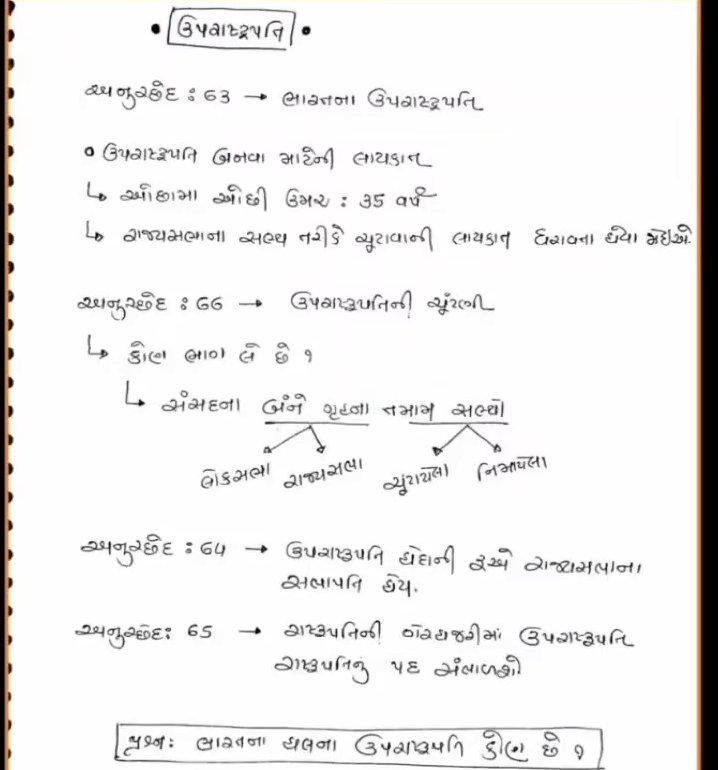 • ઉપરાષ્ટ્રપતિ •
અનુચ્છેદ : 63 → ભારતના ઉપરાષ્ટ્રપતિ
• ઉપરાષ્ટ્રપતિ બનવા માટેની લાયકાત
↳ ઓછામા ઓછી ઉંમર : 35 વર્ષ
↳ રાજ્યસભાના સભ્ય તરીકે ચૂંટાવાની લાયકાત ધરાવતા હોવા જોઈએ.
અનુચ્છેદ : 66 → ઉપરાષ્ટ્રપતિની ચૂંટણી
↳ કોણ ભાગ લે છે ?
↳ સંસદના બંને ગૃહના તમામ સભ્યો
લોકસભા રાજ્યસભા ચૂંટાયેલા નિમાયેલા
અનુચ્છેદ : 64 → ઉપરાષ્ટ્રપતિ હોદાની રૂએ રાજ્યસભાના
સભાપતિ હોય.
અનુચ્છેદ: 65 → રાષ્ટ્રપતિની ગેરહાજરીમાં ઉપરાષ્ટ્રપતિ
રાષ્ટ્રપતિનું પદ સંભાળશે
પ્રશ્ન: ભારતના હાલના ઉપરાષ્ટ્રપતિ કોણ છે ?